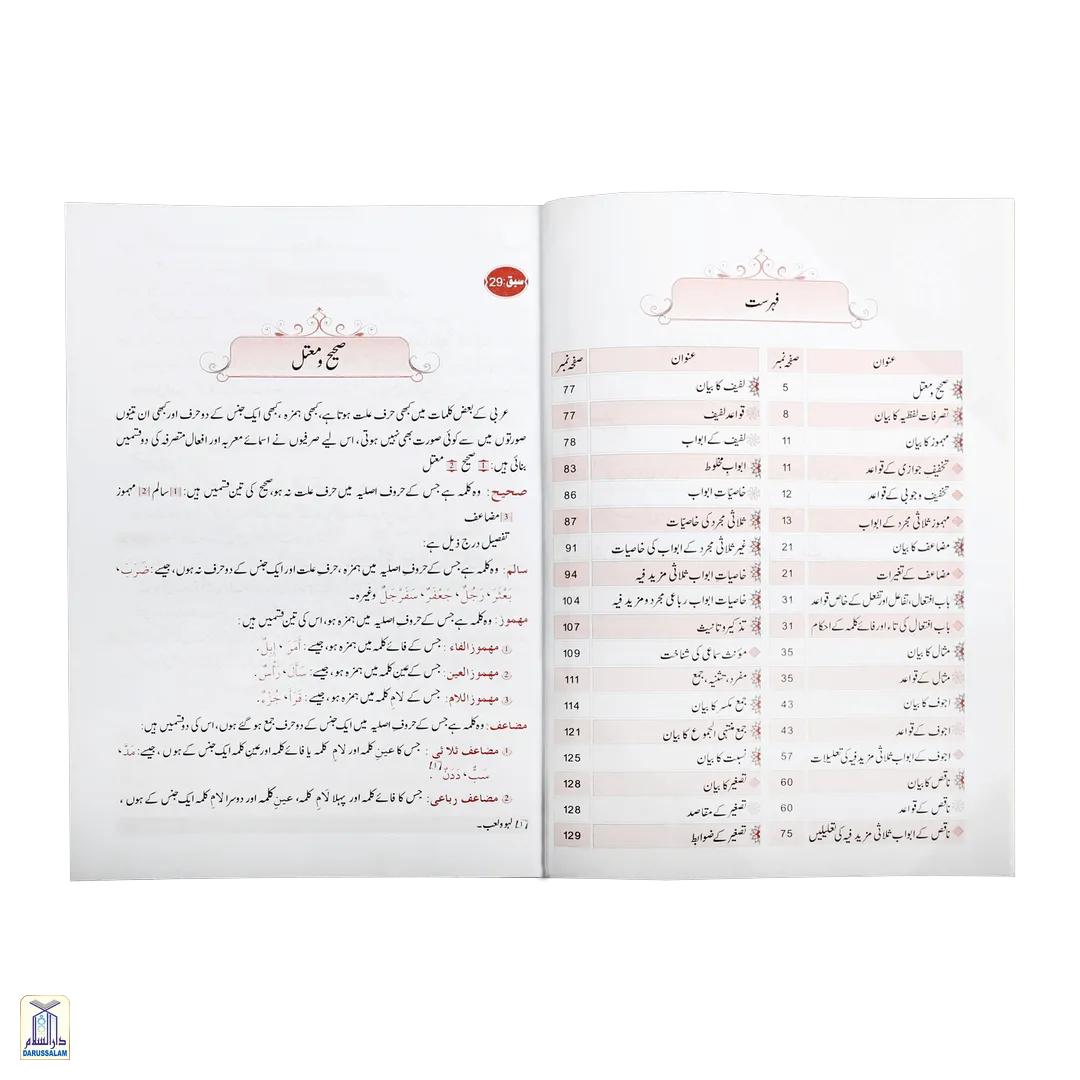 فہرست
عنوان صفحہ نمبر عنوان صفحہ نمبر
صحیح و معتل 5 لفیف کا بیان 77
تصرفات لفظیہ کا بیان 8 قواعد لفیف 77
مہموز کا بیان 11 لفیف کے ابواب 78
تخفیف جوازی کے قواعد 11 ابواب مخلوط 83
تخفیف وجوبی کے قواعد 12 خاصیّات ابواب 86
مہموز ثلاثی مجرد کے ابواب 13 ثلاثی مجرد کی خاصیّات 87
مضاعف کا بیان 21 غیر ثلاثی مجرد کے ابواب کی خاصیات 91
مضاعف کے تغیرات 21 خاصیات ابواب ثلاثی مزید فیہ 94
باب افتعال، تفاعل اور تفعل کے خاص قواعد 31 خاصیات ابواب رباعی مجرد و مزید فیہ 104
باب افتعال کی تاء اور فائے کلمہ کے احکام 31 تذکیر و تانیث 107
مثال کا بیان 35 مؤنث سماعی کی شناخت 109
مثال کے قواعد 35 مفرد، تثنیہ، جمع 111
اجوف کا بیان 43 جمع مکسر کا بیان 114
اجوف کے قواعد 43 جمع منتہی الجموع کا بیان 121
اجوف کے ابواب ثلاثی مزید فیہ کی تعلیلات 57 نسبت کا بیان 125
ناقص کا بیان 60 تصغیر کا بیان 128
ناقص کے قواعد 60 تصغیر کے مقاصد 128
ناقص کے ابواب ثلاثی مزید فیہ کی تعلیلیں 75 تصغیر کے ضوابط 129
سبق: 29
صحیح و معتل
عربی کے بعض کلمات میں کبھی حرف علت ہوتا ہے، کبھی ہمزہ، کبھی ایک جنس کے دو حرف اور کبھی ان تینوں
صورتوں میں سے کوئی صورت بھی نہیں ہوتی، اس لیے صرفیوں نے اسمائے معربہ اور افعال متصرفہ کی دو قسمیں
بنائی ہیں: 1 صحیح 2 معتل
صحیح: وہ کلمہ ہے جس کے حروف اصلیہ میں حرف علت نہ ہو، صحیح کی تین قسمیں ہیں: 1 سالم 2 مہموز
3 مضاعف
تفصیل درج ذیل ہے:
سالم: وہ کلمہ ہے جس کے حروفِ اصلیہ میں ہمزہ، حرفِ علت اور ایک جنس کے دو حرف نہ ہوں، جیسے: ضَرَبَ،
بَعْثَرَ، رَجُلٌ، جَعْفَرٌ، سَفَرْجَلٌ وغیرہ۔
مہموز: وہ کلمہ ہے جس کے حروف اصلیہ میں ہمزہ ہو، اس کی تین قسمیں ہیں:
① مہموز الفاء: جس کے فائے کلمہ میں ہمزہ ہو، جیسے: أَمَرَ، إِبِلٌ.
② مہموز العین: جس کے عین کلمہ میں ہمزہ ہو، جیسے: سَأَلَ، رَأْسٌ.
③ مہموز اللام: جس کے لام کلمہ میں ہمزہ ہو، جیسے: قَرَأَ، جُزْءٌ.
مضاعف: وہ کلمہ ہے جس کے حروفِ اصلیہ میں ایک جنس کے دو حرف جمع ہو گئے ہوں، اس کی دو قسمیں ہیں:
① مضاعف ثلاثی: جس کا عین کلمہ اور لام کلمہ یا فائے کلمہ اور عین کلمہ ایک جنس کے ہوں، جیسے: مَدَّ،
سَبٌّ، دَدَنٌ.
② مضاعف رباعی: جس کا فائے کلمہ اور پہلا لام کلمہ، عین کلمہ اور دوسرا لام کلمہ ایک جنس کے ہوں،
لہو و لعب۔
دار السلام
DARUSSALAM